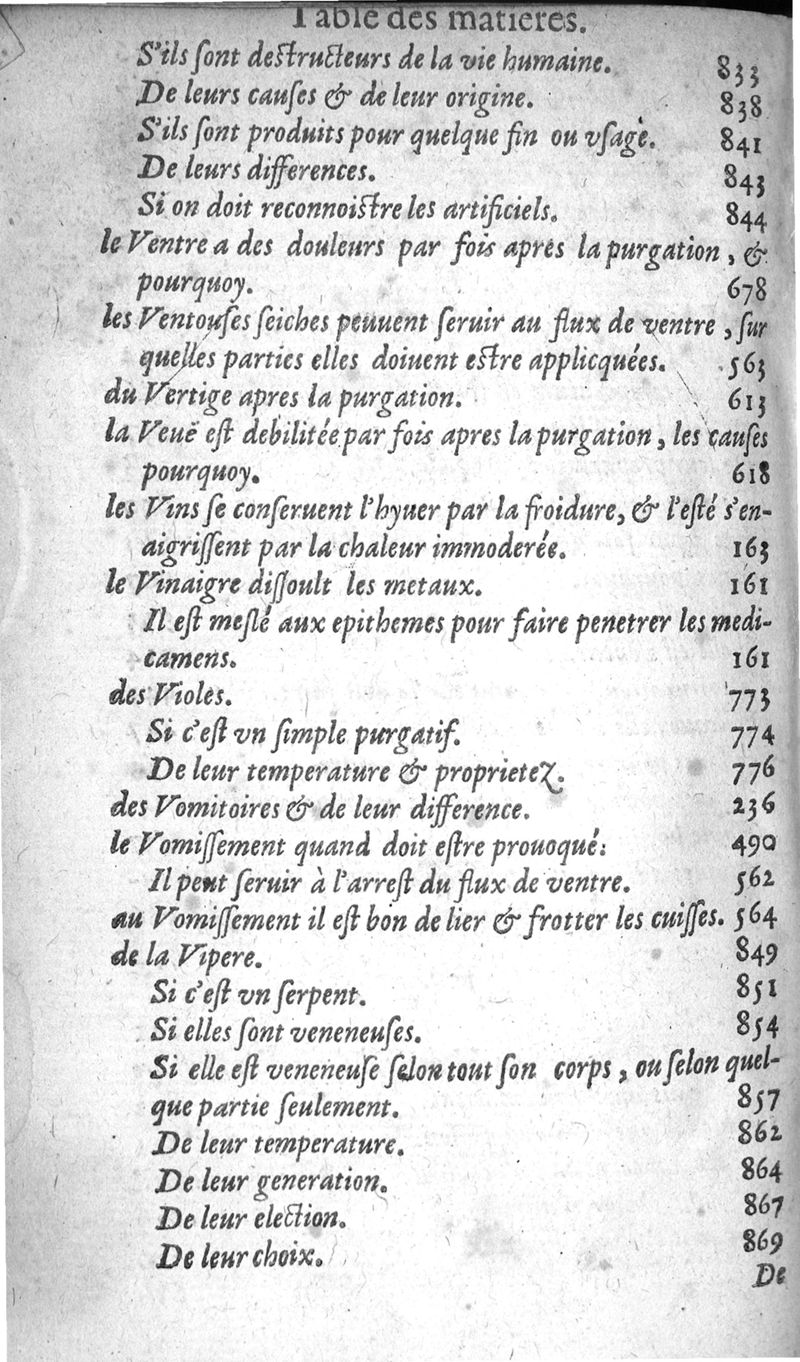 Table des matieres.
S'ils ſont deſtructeurs de la vie humaine. 833
De leurs cauſes & de leur origine. 838
S'ils ſont produits pour quelque fin ou vſage. 841
De leurs differences. 843
Si on doit reconnoiſtre les artificiels. 844
le Ventre a des douleurs par fois apres la purgation, &
pourquoy. 678
les Ventouſes ſeiches peuuent ſeruir au flux de ventre, ſur
quelles parties elles doiuent eſtre applicquées. 563
du Vertige apres la purgation. 613
la Veuë eſt debilitée par fois apres la purgation, les cauſes
pourquoy. 618
les Vins ſe conſeruent l'hyuer par la froidure, & l'eſté s'en-
aigriſſent par la chaleur immoderée. 163
le Vinaigre diſſoult les metaux. 161
Il eſt meſlé aux epithemes pour faire penetrer les medi-
camens. 161
des Violes. 773
Si c'eſt vn ſimple purgatif. 774
De leur temperature & proprietez. 776
des Vomitoires & de leur difference. 236
le Vomiſſement quand doit eſtre prouoqué: 490
Il peut ſeruir à l'arreſt du flux de ventre. 562
au Vomiſſement il eſt bon de lier & frotter les cuiſſes. 564
de la Vipere. 849
Si c'eſt vn ſerpent. 851
Si elles ſont veneneuſes. 854
Si elle eſt veneneuſe ſelon tout ſon corps, ou ſelon quel-
que partie ſeulement. 857
De leur temperature. 862
De leur generation. 864
De leur election. 867
De leur choix. 869
De